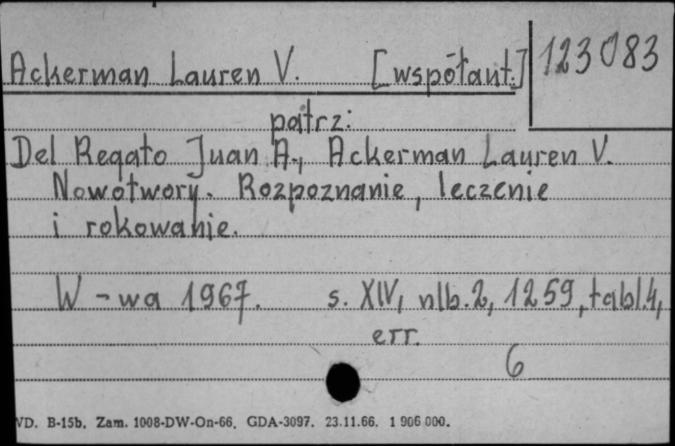 Ackerman Lauren V. [współaut.]
123083
patrz:
Del Regato Juan A., Ackerman Lauren V.
Nowotwory. Rozpoznanie, leczenie
i rokowanie.
W-wa 1967. s. XIV, nlb. 2, 1259, tabl. 4,
err.
6
VD. B-15b. Zam. 1008-DW-On-66. GDA-3097. 23.11.66. 1 906 000.